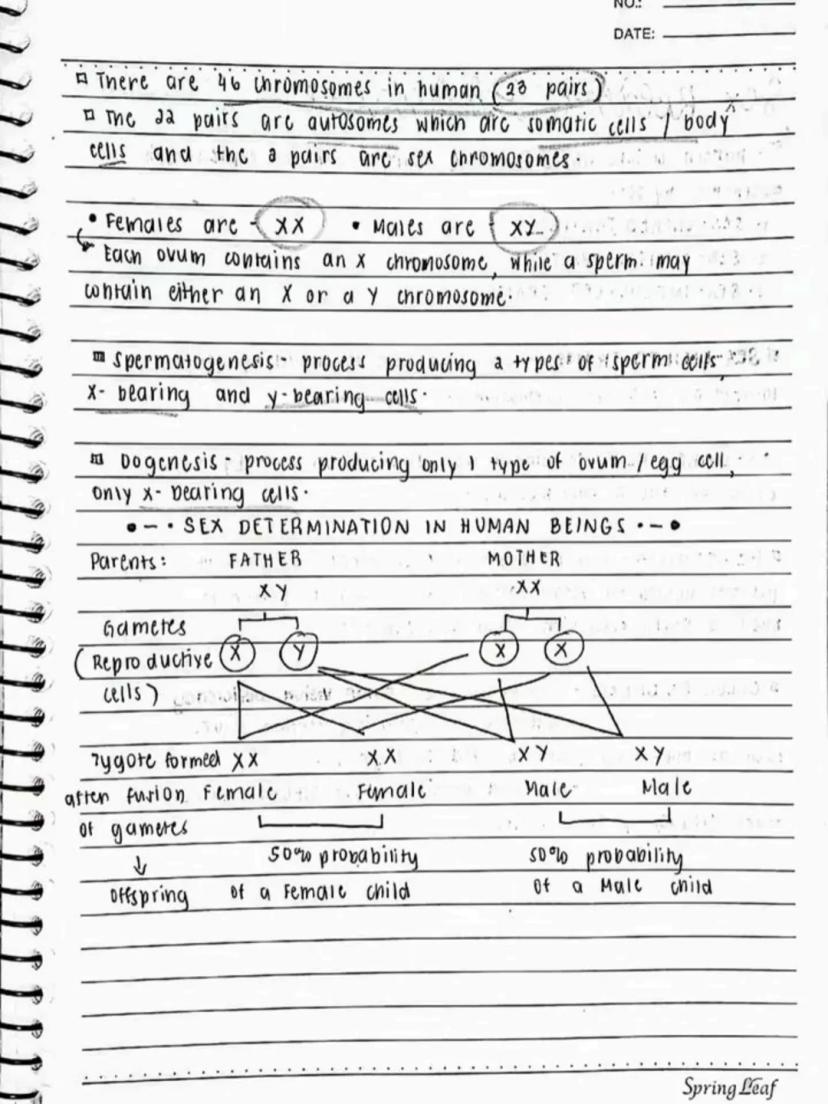 NO.:
DATE:
There are 46 chromosomes in human (23 pairs)
The 22 pairs are autosomes which are somatic cells / body
cells and the 2 pairs are sex chromosomes.
• Females are - XX • Males are XY
Each ovum contains an X chromosome, while a sperm may
contain either an X or a Y chromosome.
Spermatogenesis - process producing 2 types of sperm cells,
X- bearing and y-bearing cells.
Oogenesis - process producing only 1 type of ovum / egg cell,
only x- bearing cells.
•-• SEX DETERMINATION IN HUMAN BEINGS •-•
Parents: FATHER MOTHER
XY XX
Gametes
(Reproductive X Y X X
cells)
Zygote formed XX XX XY XY
after fusion Female Female Male Male
of gametes
↓ 50% probability 50% probability
Offspring of a Female child of a Male child
Spring Leaf